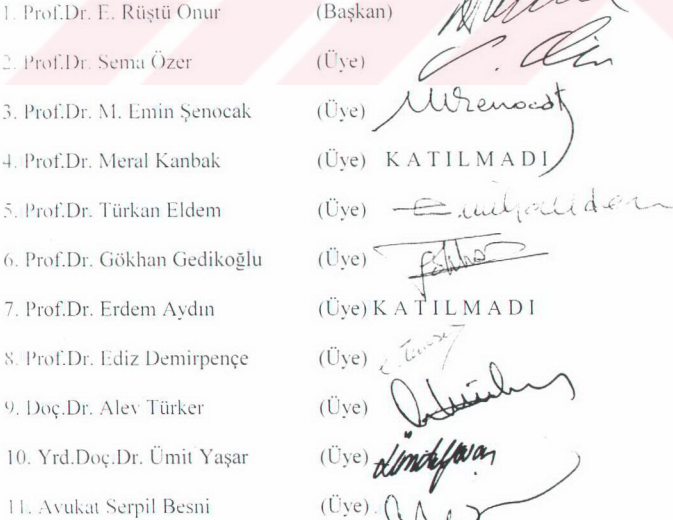 1. Prof.Dr. E. Rüştü Onur (Başkan)
2. Prof.Dr. Sema Özer (Üye)
3. Prof.Dr. M. Emin Şenocak (Üye)
4. Prof.Dr. Meral Kanbak (Üye) KATILMADI
5. Prof.Dr. Türkan Eldem (Üye)
6. Prof.Dr. Gökhan Gedikoğlu (Üye)
7. Prof.Dr. Erdem Aydın (Üye) KATILMADI
8. Prof.Dr. Ediz Demirpençe (Üye)
9. Doç.Dr. Alev Türker (Üye)
10. Yrd.Doç.Dr. Ümit Yaşar (Üye)
11. Avukat Serpil Besni (Üye).